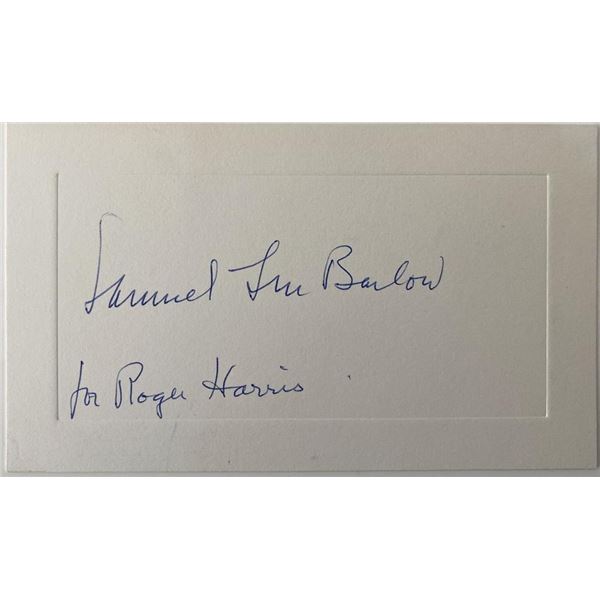 Samuel Lm Barlow
for Roger Harris